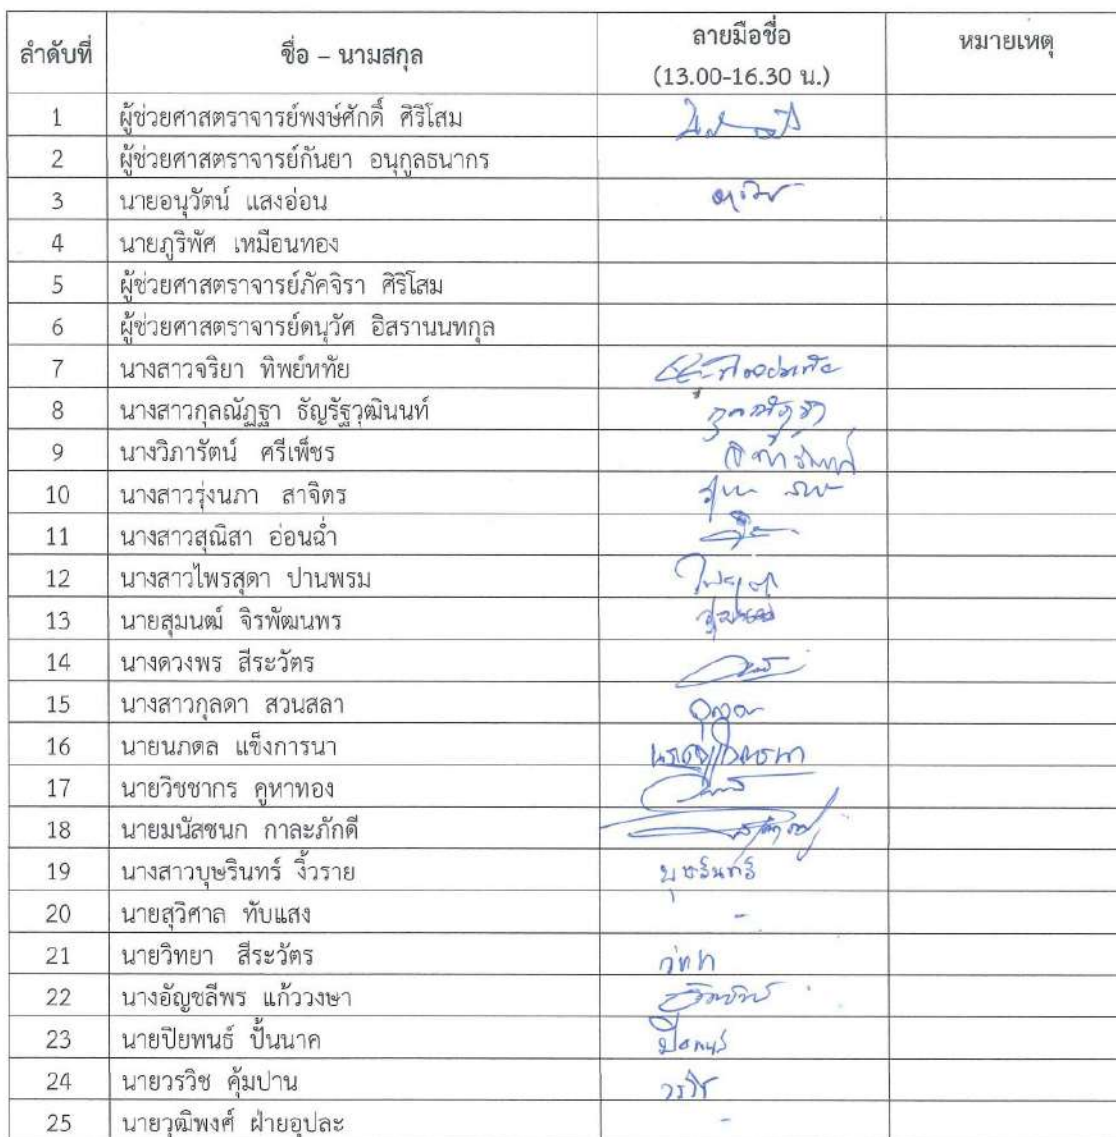 ลำดับที่ ชื่อ – นามสกุล ลายมือชื่อ หมายเหตุ
(13.00-16.30 น.)
1 ผู้ช่วยศาสตราจารย์พงษ์ศักดิ์ ศิริโสม
2 ผู้ช่วยศาสตราจารย์กันยา อนุกูลธนากร
3 นายอนุวัตน์ แสงอ่อน
4 นายภูริพัศ เหมือนทอง
5 ผู้ช่วยศาสตราจารย์ภัคจิรา ศิริโสม
6 ผู้ช่วยศาสตราจารย์ดนุวัศ อิสรานนทกุล
7 นางสาวจริยา ทิพย์หทัย
8 นางสาวกุลณัฏฐา ธัญรัฐวุฒินนท์ กุลณัฏฐา
9 นางวิภารัตน์ ศรีเพ็ชร
10 นางสาวรุ่งนภา สาจิตร
11 นางสาวสุณิสา อ่อนฉ่ำ
12 นางสาวไพรสุดา ปานพรม
13 นายสุมนฒ์ จิรพัฒนพร
14 นางดวงพร สีระวัตร
15 นางสาวกุลดา สวนสลา กุลดา
16 นายนภดล แข็งการนา
17 นายวิชชากร คูหาทอง
18 นายมนัสชนก กาละภักดี
19 นางสาวบุษรินทร์ งิ้วราย บุษรินทร์
20 นายสุวิศาล ทับแสง -
21 นายวิทยา สีระวัตร วิทยา
22 นางอัญชลีพร แก้ววงษา
23 นายปิยพนธ์ ปั้นนาค ปิยพนธ์
24 นายวรวิช คุ้มปาน วรวิช
25 นายวุฒิพงศ์ ฝ่ายอุปละ -